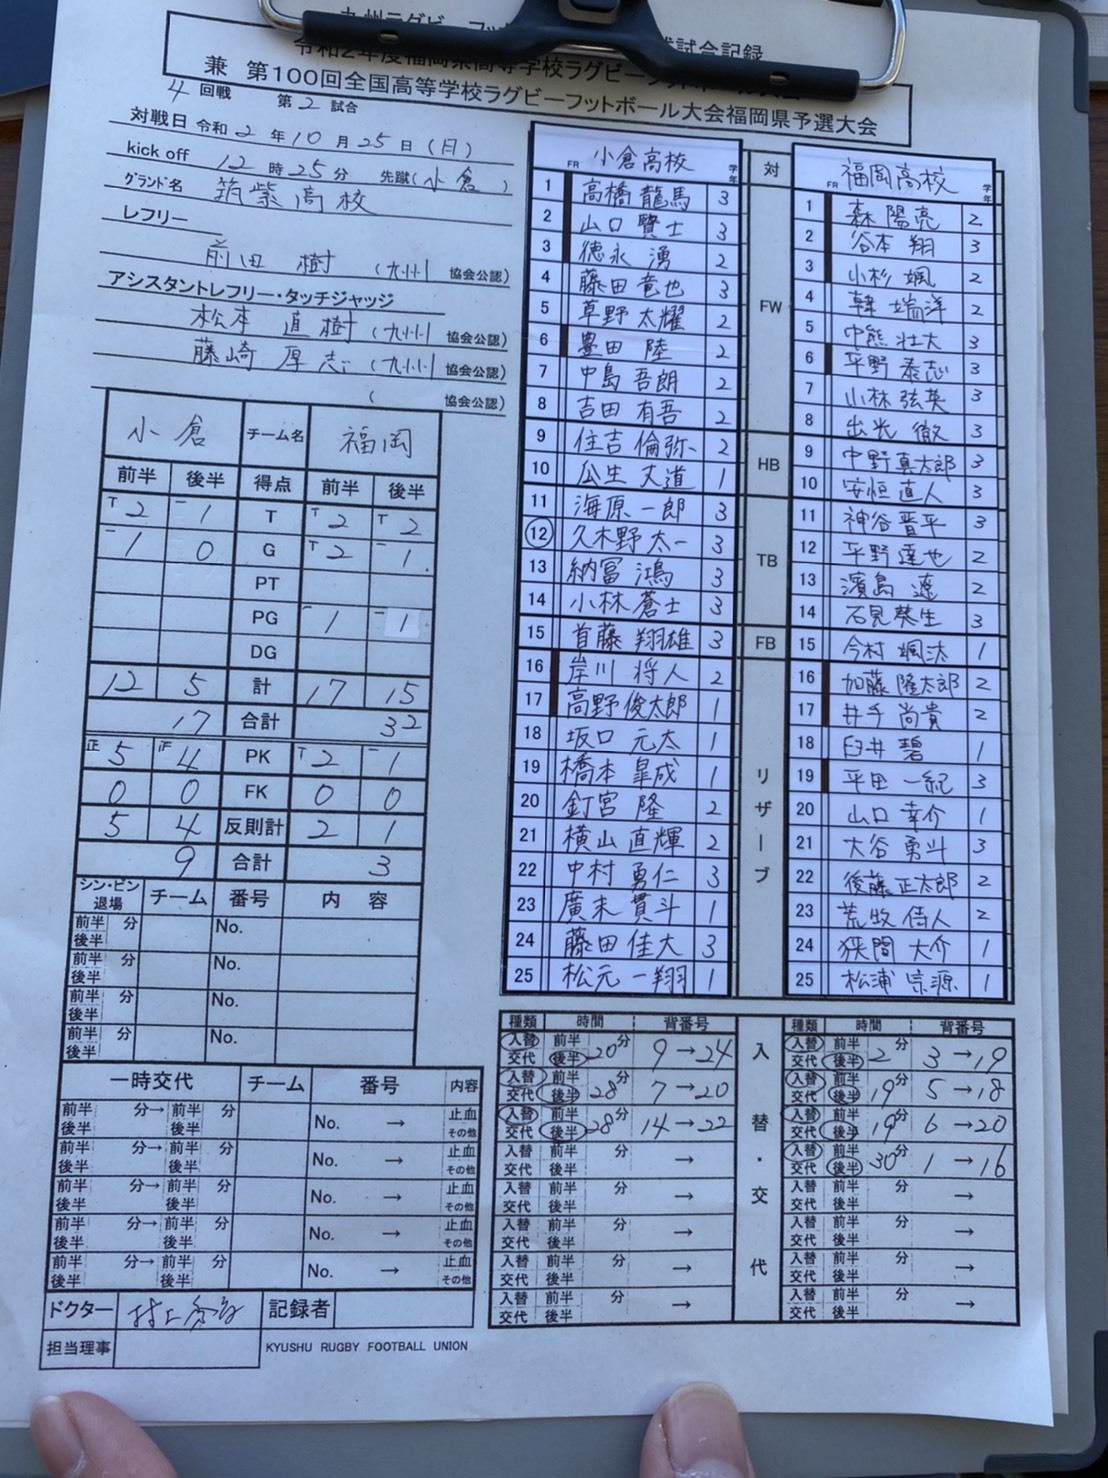 令和2年度福岡県高等学校ラグビーフットボール
兼 第100回全国高等学校ラグビーフットボール大会福岡県予選大会
4 回戦 第 2 試合
対戦日 令和 2 年 10 月 25 日 (月)
kick off 12 時 25 分 先蹴(小倉)
グランド名 筑紫高校
レフリー
前田 樹 (九州 協会公認)
アシスタントレフリー・タッチジャッジ
松本 直樹 (九州 協会公認)
藤崎 厚志 (九州 協会公認)
( 協会公認)
小倉 チーム名 福岡
前半 後半 得点 前半 後半
2 1 T 2 2
1 0 G 2 1
PT
PG 1 1
DG
12 5 計 17 15
17 合計 32
5 4 PK 2 1
0 0 FK 0 0
5 4 反則計 2 1
9 合計 3
シン・ビン 退場 チーム 番号 内 容
前半 分 No.
後半
前半 分 No.
後半
前半 分 No.
後半
前半 分 No.
後半
一時交代 チーム 番号 内容
前半 分→ 前半 分 No. → 止血
後半 後半 その他
前半 分→ 前半 分 No. → 止血
後半 後半 その他
前半 分→ 前半 分 No. → 止血
後半 後半 その他
前半 分→ 前半 分 No. → 止血
後半 後半 その他
前半 分→ 前半 分 No. → 止血
後半 後半 その他
ドクター 記録者
担当理事
KYUSHU RUGBY FOOTBALL UNION
FR 小倉高校 学年
1 高橋 龍馬 3
2 山口 賢士 3
3 徳永 湧 2
4 藤田 竜也 3
5 草野 太耀 2
6 豊田 陸 2
7 中島 吾朗 2
8 吉田 有吾 2
9 住吉 倫弥 2
10 丈道 1
11 海原 一郎 3
12 久木野 太一 3
13 納冨 鴻 3
14 小林 蒼士 3
15 首藤 翔雄 3
16 岸川 将人 2
17 高野 俊太郎 1
18 坂口 元太 1
19 橋本 皐成 1
20 釘宮 隆 2
21 横山 直輝 2
22 中村 勇仁 3
23 廣末 貫斗 1
24 藤田 佳大 3
25 松元 一翔 1
対
FW
HB
TB
FB
リザーブ
FR 福岡高校 学年
1 森 陽亮 2
2 谷本 翔 3
3 小杉 颯 2
4 韓 瑞洋 2
5 中熊 壮大 3
6 平野 泰志 3
7 小林 弦英 3
8 出光 徹 3
9 中野 真太郎 3
10 安恒 直人 3
11 神谷 晋平 3
12 平野 達也 2
13 濱島 遼 2
14 石見 葵生 3
15 今村 颯汰 1
16 加藤 隆太郎 2
17 井手 尚貴 2
18 臼井 碧 1
19 平田 一紀 3
20 山口 幸介 1
21 大谷 勇斗 3
22 後藤 正太郎 2
23 荒牧 侑人 2
24 狭間 大介 1
25 松浦 宗源 1
種類 時間 背番号
入替 前半 20分 9→24
交代 後半
入替 前半 28分 7→20
交代 後半
入替 前半 28分 14→22
交代 後半
入替 前半 分 →
交代 後半
入替 前半 分 →
交代 後半
入替 前半 分 →
交代 後半
入替 前半 分 →
交代 後半
入替 前半 分 →
交代 後半
入替・交代
種類 時間 背番号
入替 前半 2分 3→19
交代 後半
入替 前半 19分 5→18
交代 後半
入替 前半 19分 6→20
交代 後半
入替 前半 30分 1→16
交代 後半
入替 前半 分 →
交代 後半
入替 前半 分 →
交代 後半
入替 前半 分 →
交代 後半
入替 前半 分 →
交代 後半